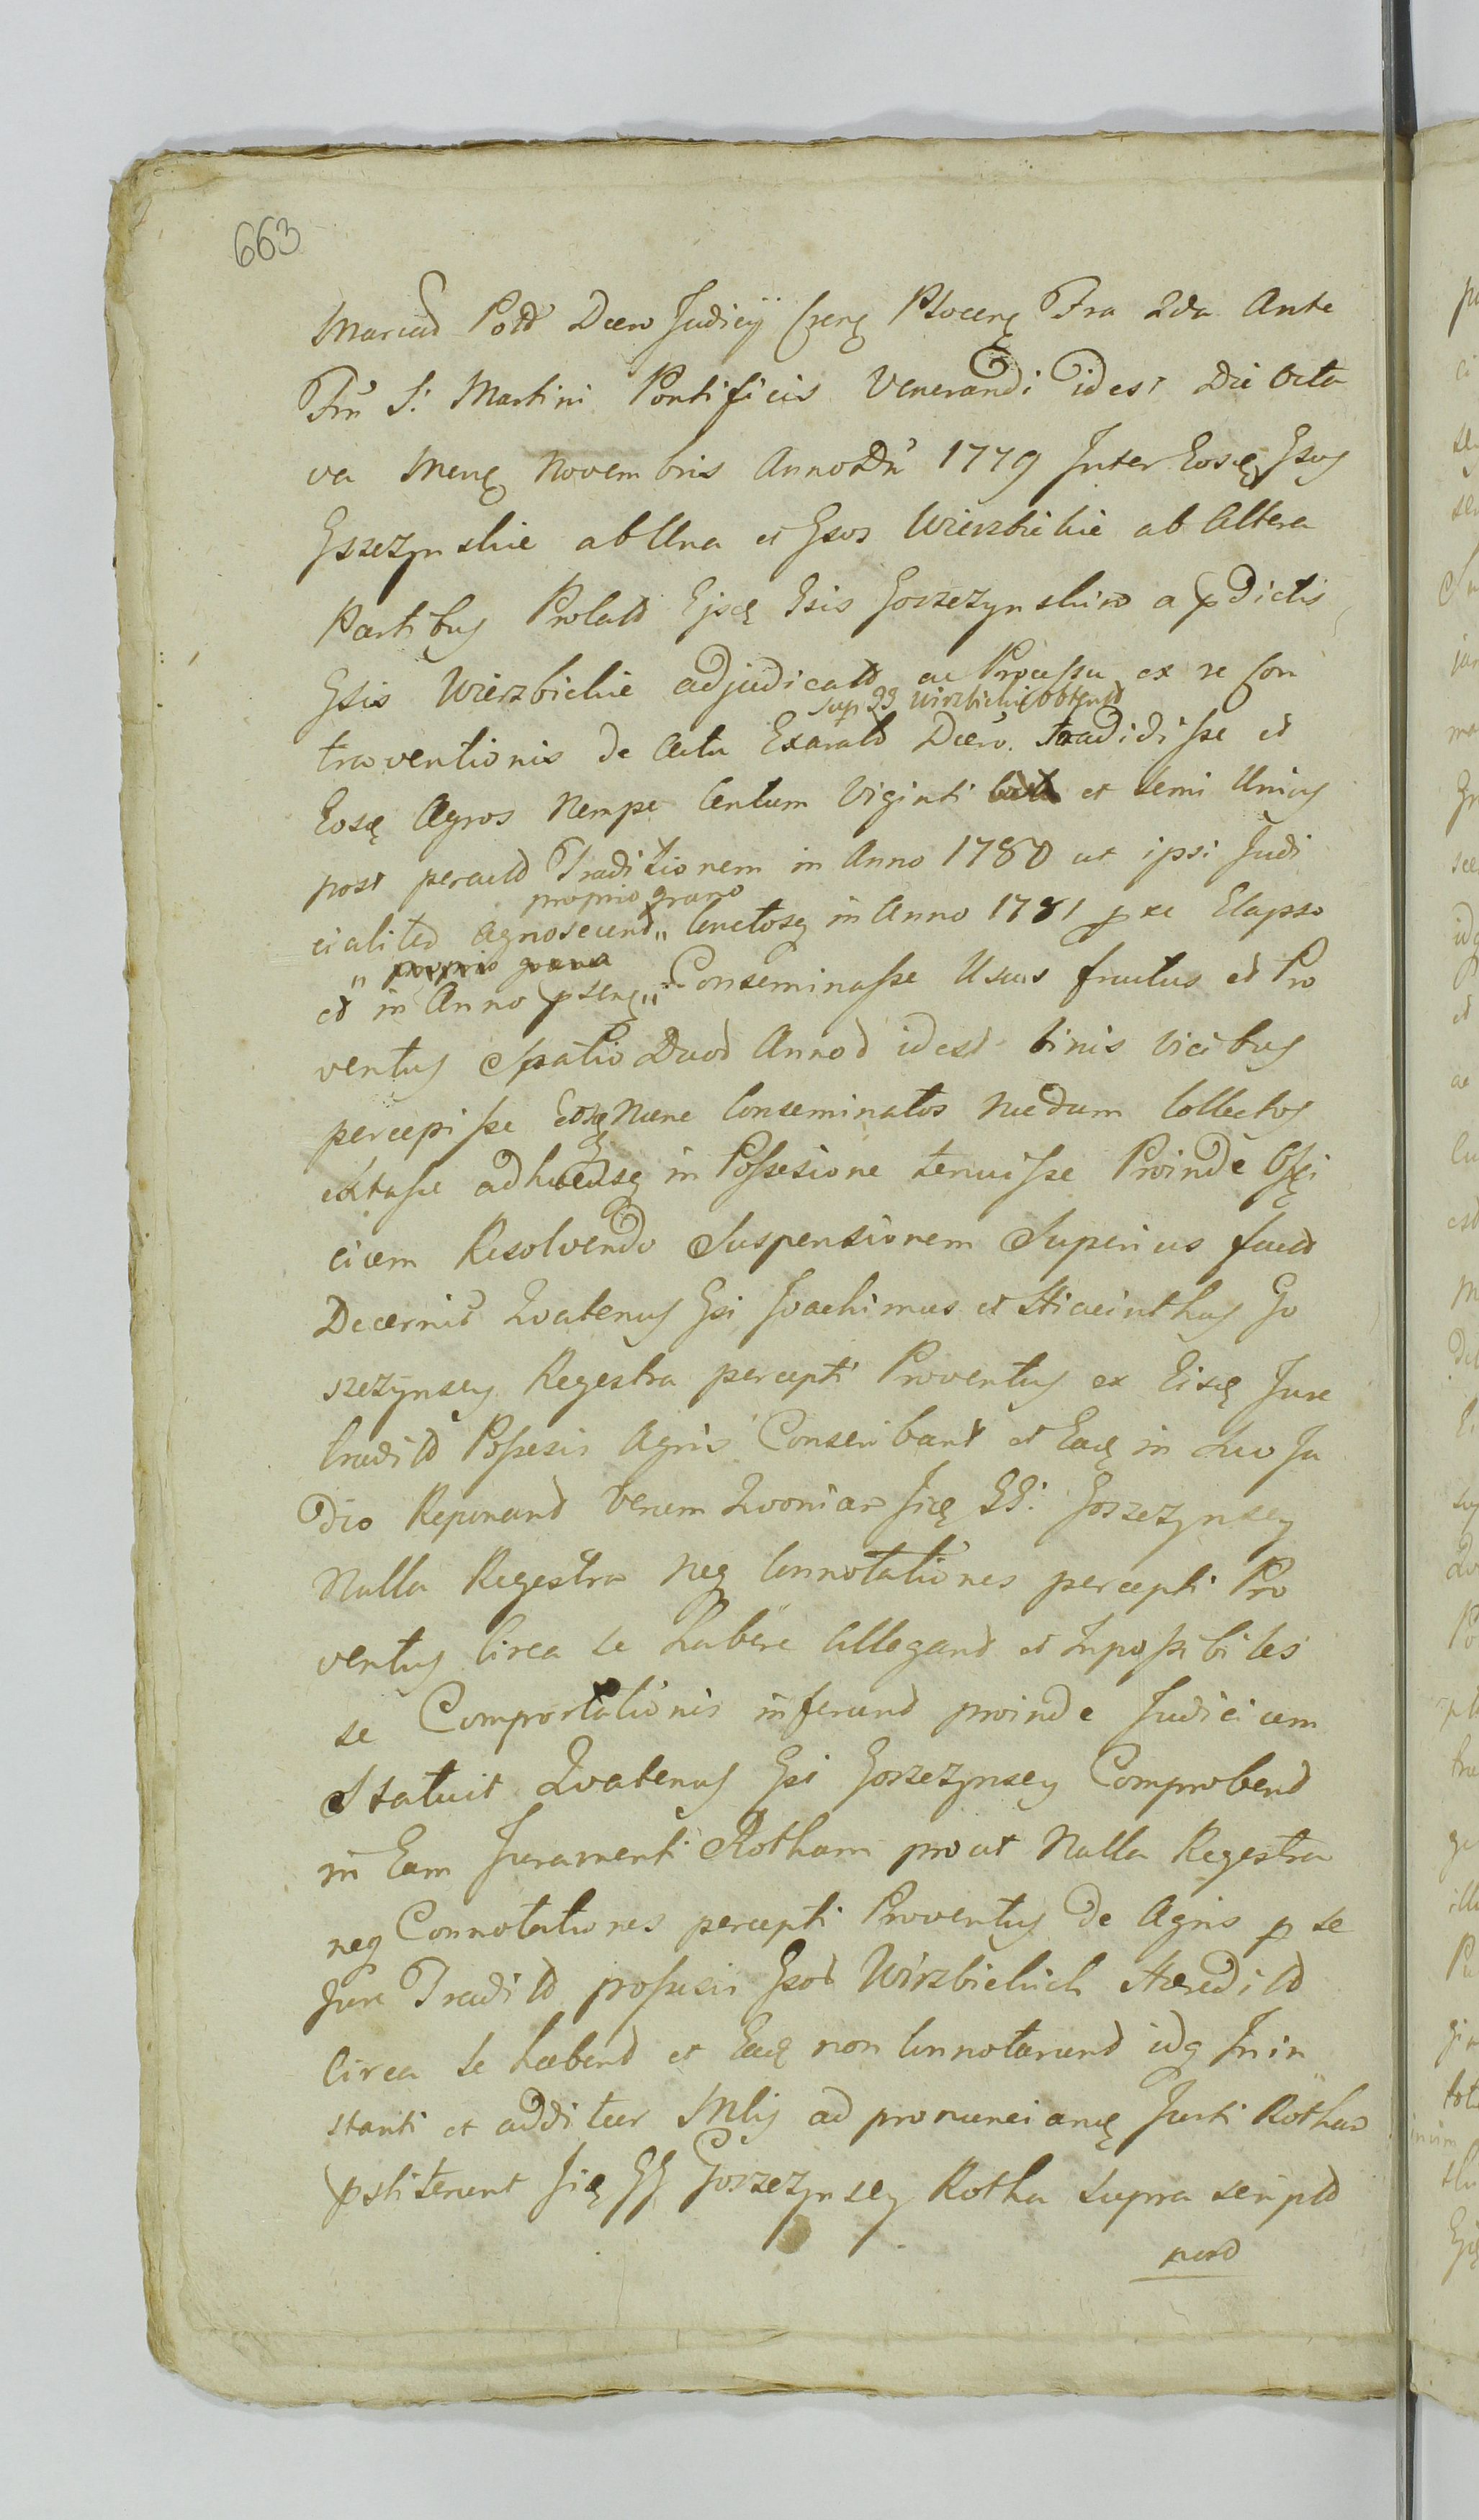 663
Mariad Pottd Decro Judicij Crenę Plocenę Fra 2da Ante
Frn S: Martini Pontificis Venerandi idest Die Octa
va Mensę Novembris Anno Dni 1779 Inter Eosdę Gsos
Gszczynskie ab Una et Gsos Wierzbickie ab Altera
Partibus Prolatd Ejsdę Gsis Goszczynskim a pdictis
Gsis Wierzbickie adjudicatd ac Processu ex re Con
sup GG Wirzbickie Obtentd
traventionis de Actu Exaratd Decro. Tradidisse et
Eosdę Agros Nempe Centum Viginti et Semi Unius
post peractd Traditionem in Anno 1780 ut ipsi Judi
proprio grano
cialited Agnoscund,, Cunctosq in Anno 1781 pxe Elapso
,, proprio grana
et in Anno pstnę,, Conseminasse Usus fructus et Pro
ventus Spatio Duod Annod idest binis Vicibus
percepisse Eosdę Nunc Conseminatos Necdum Collectos
extasse adhuc Eosq in Possesione tenuisse Proinde Offi
cium Resolvendo Suspensionem Superius factd
Decernit Quatenus Gsi Joachimus et Hiacinthus Go
szczynscy Regestra percepti Proventus ex Eisdę Jure
tradittd Possesis Agris Conscribant et Eadę in Suo Ju
dio Reponand Verum Quoniam Jidę GG: Goszczynscy
Nulla Regestra neq Connotationes percepti Pro
ventus Circa se habere Allegand et Inpossibiles
se Comportationis inferund proinde Judicium
Statuit Quatenus Gsi Goszczynscy Comprobend
in Eam Juramenti Rotham prout Nulla Regestra
neq Connotationes percepti Proventus de Agris p se
Jure Tradittd possesis Gsod Wirzbickich Hæredittd
Circa se habend et Eadę non Connotarund idq In in
stanti et additur Mlis ad pronunciandę Jurti Rotham
pstiterunt Jidę GG Goszczynscy Rotha supra scriptd
nord